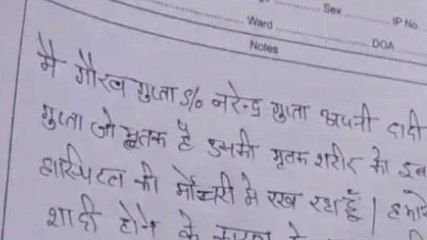 Sex
IP No
Ward
DOA
Notes
मै गौरव गुप्ता S/o नरेन्द्र गुप्ता अपनी दादी
गुप्ता जो मृतक है इसकी मृतक शरीर को इस
हास्पिटल की मोर्चरी मे रख रहा हूँ | हमारे
शादी होने के कारण